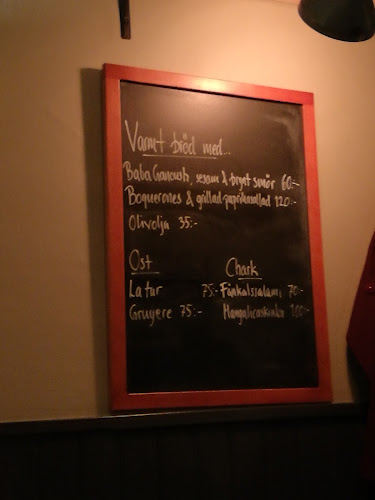 Varmt bröd med...
Baba Ganoush, sesam & brynt smör 60:-
Boquerones & grillad paprikasallad 120:-
Olivolja 35:-
Ost
La tur 75:-
Gruyere 75:-
Chark
Fänkålssalami 70:-
Mangalicaskinka 100:-